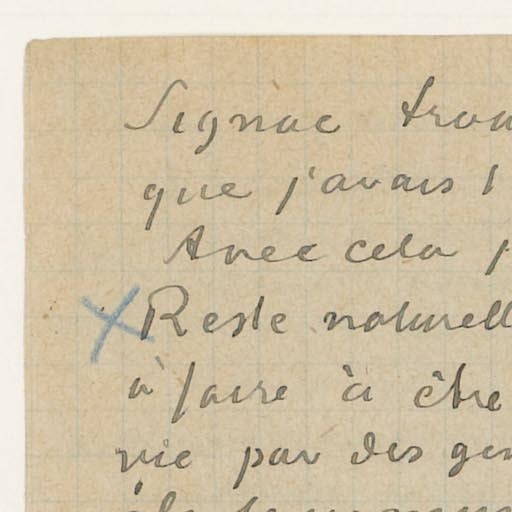 Signac trou
que j'avais l
Avec cela j
Reste naturell
à faire à être
vie par des gen